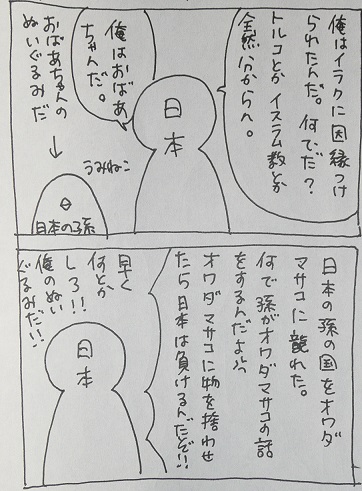 俺はイラクに因縁つけ
られたんだ。何でだ?
トルコとか イスラム教とか
全然分からへ。
俺はおばあ
ちゃんだ。
日本
おばあちゃんの
ぬいぐるみだ
↓
うみねこ
日本の孫
日本の孫の国をオワダ
マサコに
れた。
何で孫がオワダマサコの話
をするんだよ
オワダマサコに物を捨わせ
たら日本は負けるんだぞ!!
早く
何とか
しろ!!
俺のぬい
ぐるみだ!!
日本